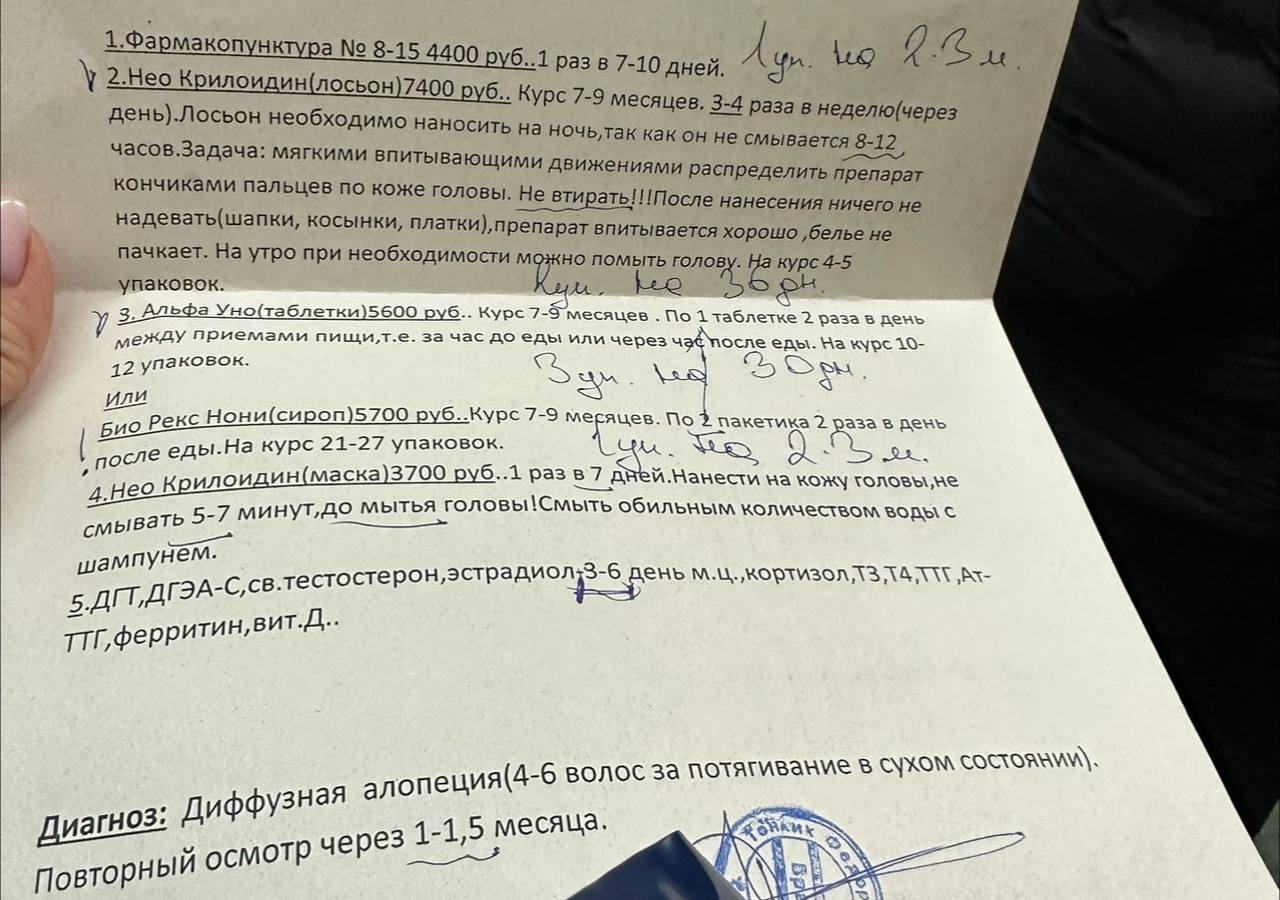 1.Фармакопунктура № 8-15 4400 руб..1 раз в 7-10 дней. 1 уп. на 2-3 м.
2.Нео Крилоидин(лосьон)7400 руб.. Курс 7-9 месяцев. 3-4 раза в неделю(через
день).Лосьон необходимо наносить на ночь,так как он не смывается 8-12
часов.Задача: мягкими впитывающими движениями распределить препарат
кончиками пальцев по коже головы. Не втирать!!!После нанесения ничего не
надевать(шапки, косынки, платки),препарат впитывается хорошо ,белье не
пачкает. На утро при необходимости можно помыть голову. На курс 4-5
упаковок. уп. на 36 дн.
3. Альфа Уно(таблетки)5600 руб.. Курс 7-9 месяцев . По 1 таблетке 2 раза в день
между приемами пищи,т.е. за час до еды или через час после еды. На курс 10-
12 упаковок. 3 уп. на 30 дн.
Или
Био Рекс Нони(сироп)5700 руб..Курс 7-9 месяцев. По 2 пакетика 2 раза в день
после еды.На курс 21-27 упаковок. 1 уп. на 2-3 м.
4.Нео Крилоидин(маска)3700 руб..1 раз в 7 дней.Нанести на кожу головы,не
смывать 5-7 минут,до мытья головы!Смыть обильным количеством воды с
шампунем.
5.ДГТ,ДГЭА-С,св.тестостерон,эстрадиол-3-6 день м.ц.,кортизол,Т3,Т4,ТТГ,Ат-
ТТГ,ферритин,вит.Д..
Диагноз: Диффузная алопеция(4-6 волос за потягивание в сухом состоянии).
Повторный осмотр через 1-1,5 месяца.